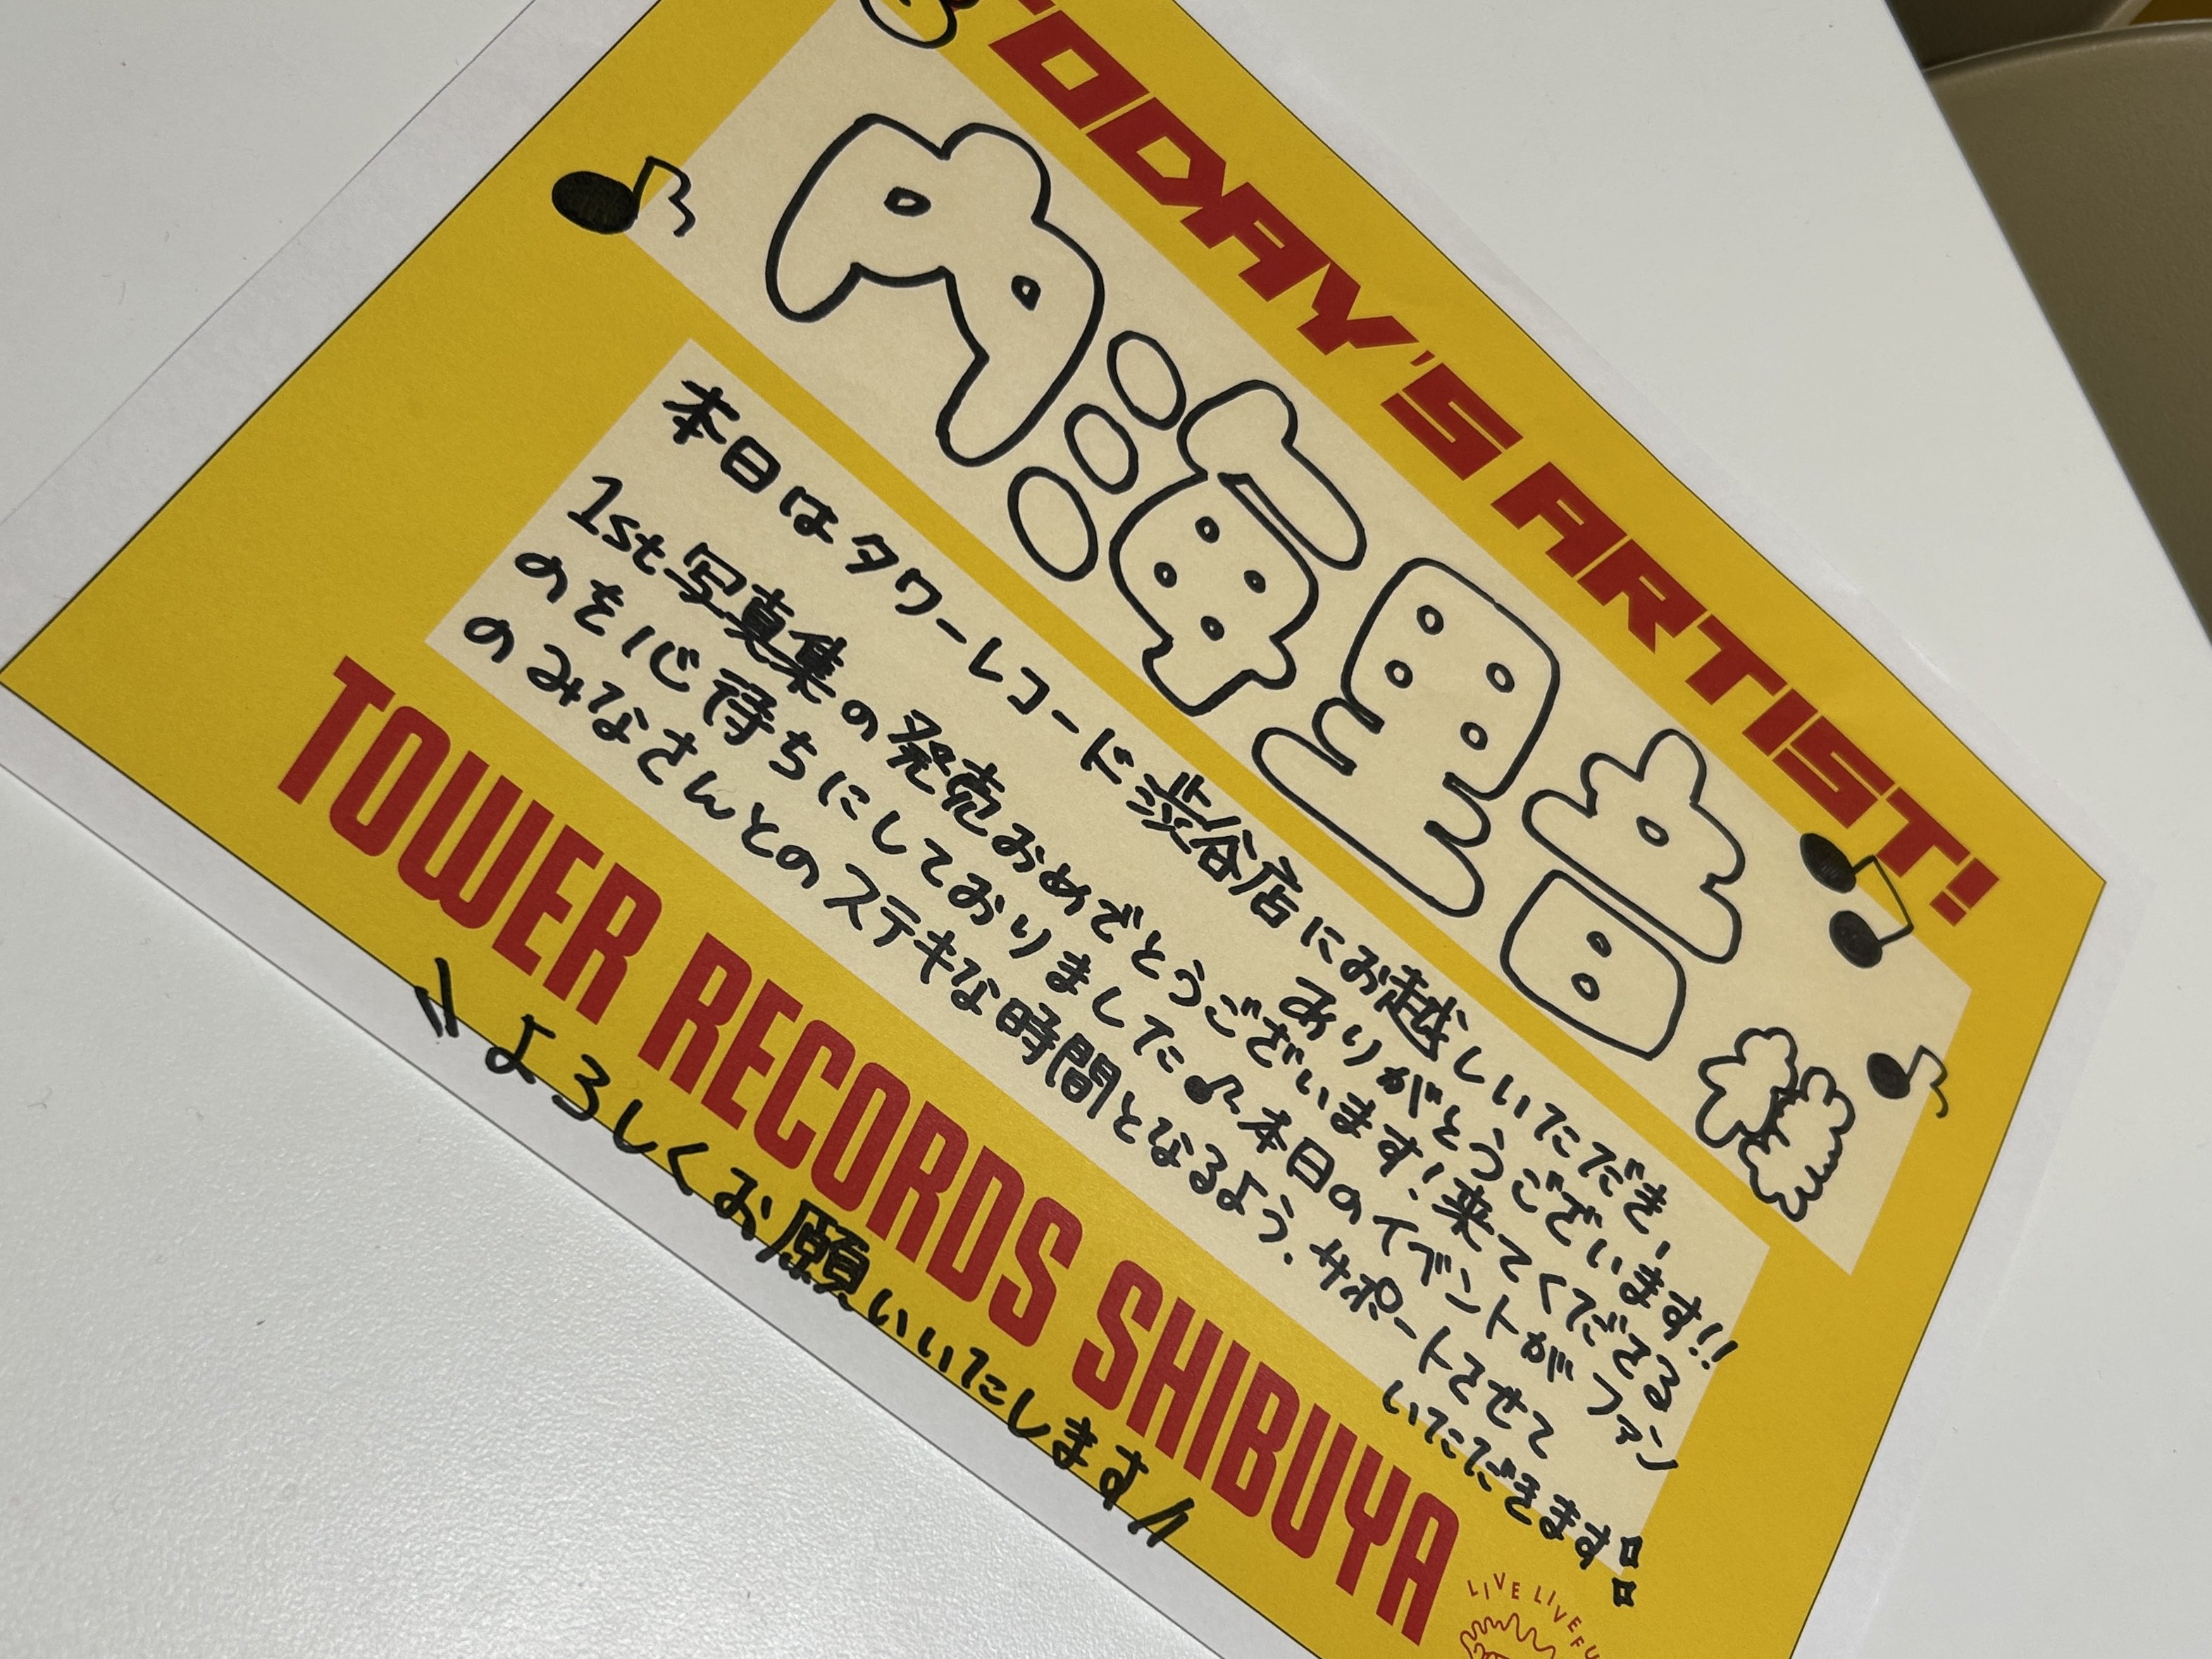 TODAY'S ARTIST!
内海里音 様
本日はタワーレコード渋谷店にお越しいただき、
ありがとうございます!!
1st写真集の発売おめでとうございます!来てくださる
のを心待ちにしておりました♪本日のイベントがファン
のみなさんとのステキな時間となるよう、サポートさせて
いただきます!!
TOWER RECORDS SHIBUYA
\\よろしくお願いいたします//
LIVE LIVEFU